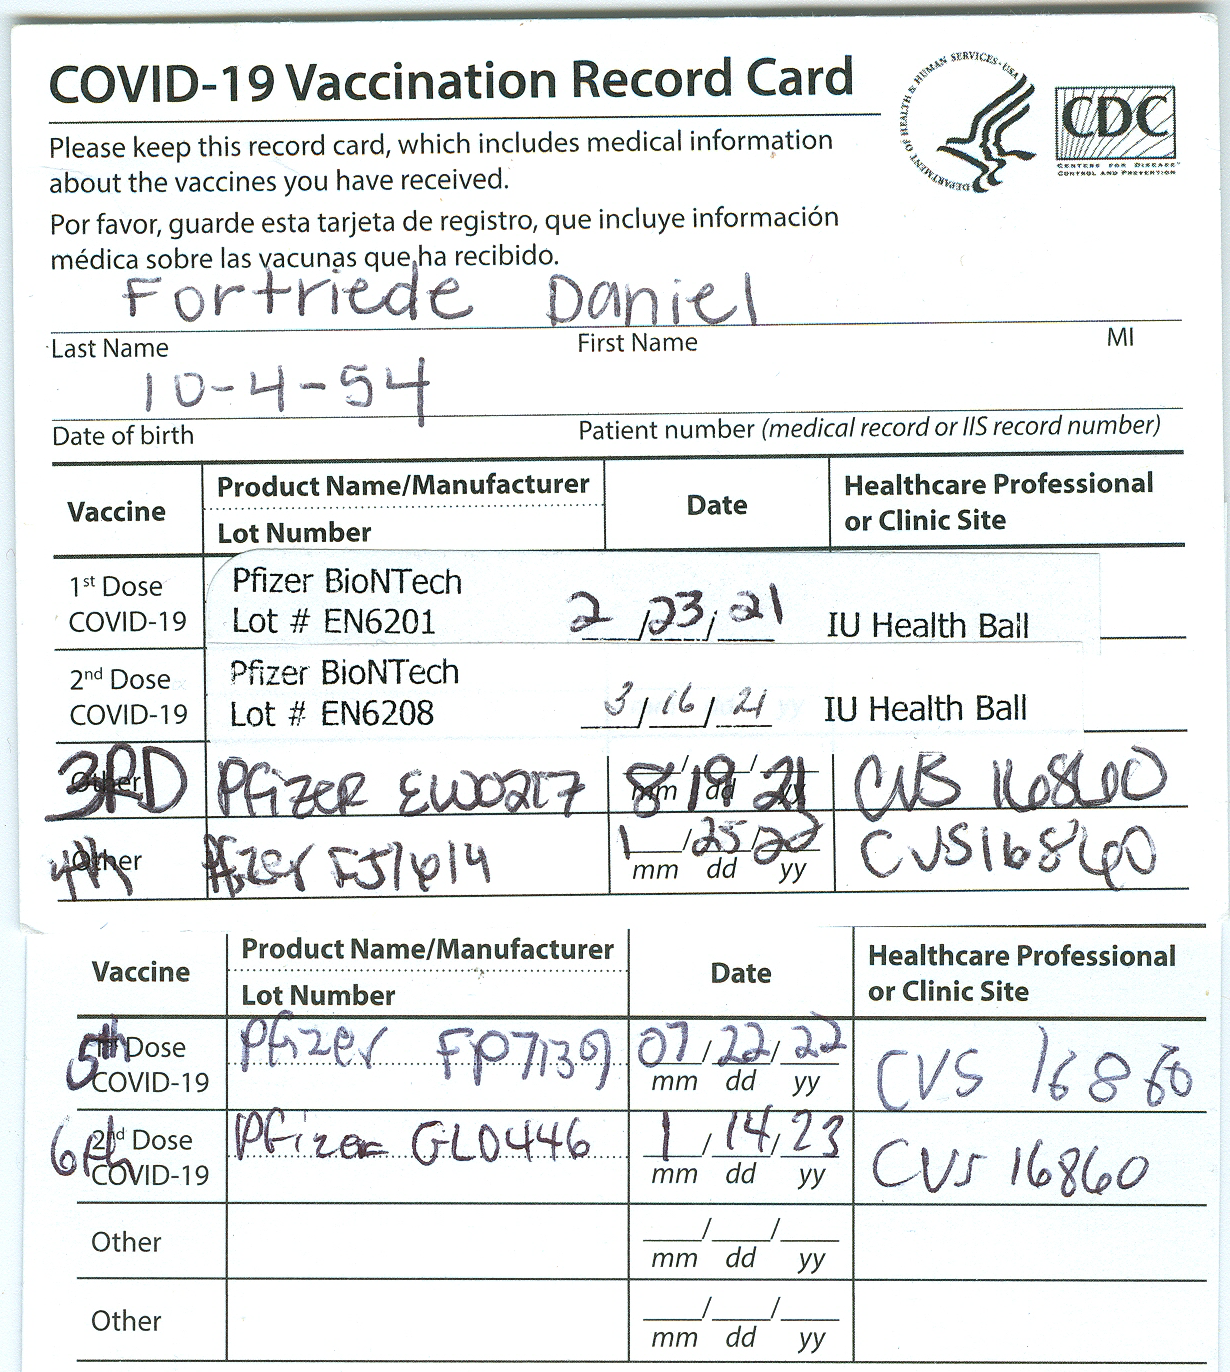 COVID-19 Vaccination Record Card
DEPARTMENT OF HEALTH & HUMAN SERVICES · USA
CDC
CENTERS FOR DISEASE
CONTROL AND PREVENTION
Please keep this record card, which includes medical information
about the vaccines you have received.
Por favor, guarde esta tarjeta de registro, que incluye información
médica sobre las vacunas que ha recibido.
Fortriede Daniel
Last Name First Name MI
10-4-54
Date of birth Patient number (medical record or IIS record number)
Vaccine Product Name/Manufacturer Date Healthcare Professional
Lot Number or Clinic Site
1st Dose Pfizer BioNTech
COVID-19 Lot # EN6201 2/23/21 IU Health Ball
2nd Dose Pfizer BioNTech
COVID-19 Lot # EN6208 3/16/21 IU Health Ball
3RD Other Pfizer EW0217 8/19/21 CVS 16860
mm dd yy
4th Other Pfizer FJ1614 1/25/22 CVS 16860
mm dd yy
Vaccine Product Name/Manufacturer Date Healthcare Professional
Lot Number or Clinic Site
5th Dose Pfizer FP7139 07/22/22 CVS 16860
COVID-19 mm dd yy
6th 2nd Dose Pfizer GL0446 1/14/23 CVS 16860
COVID-19 mm dd yy
Other __/__/__
mm dd yy
Other __/__/__
mm dd yy